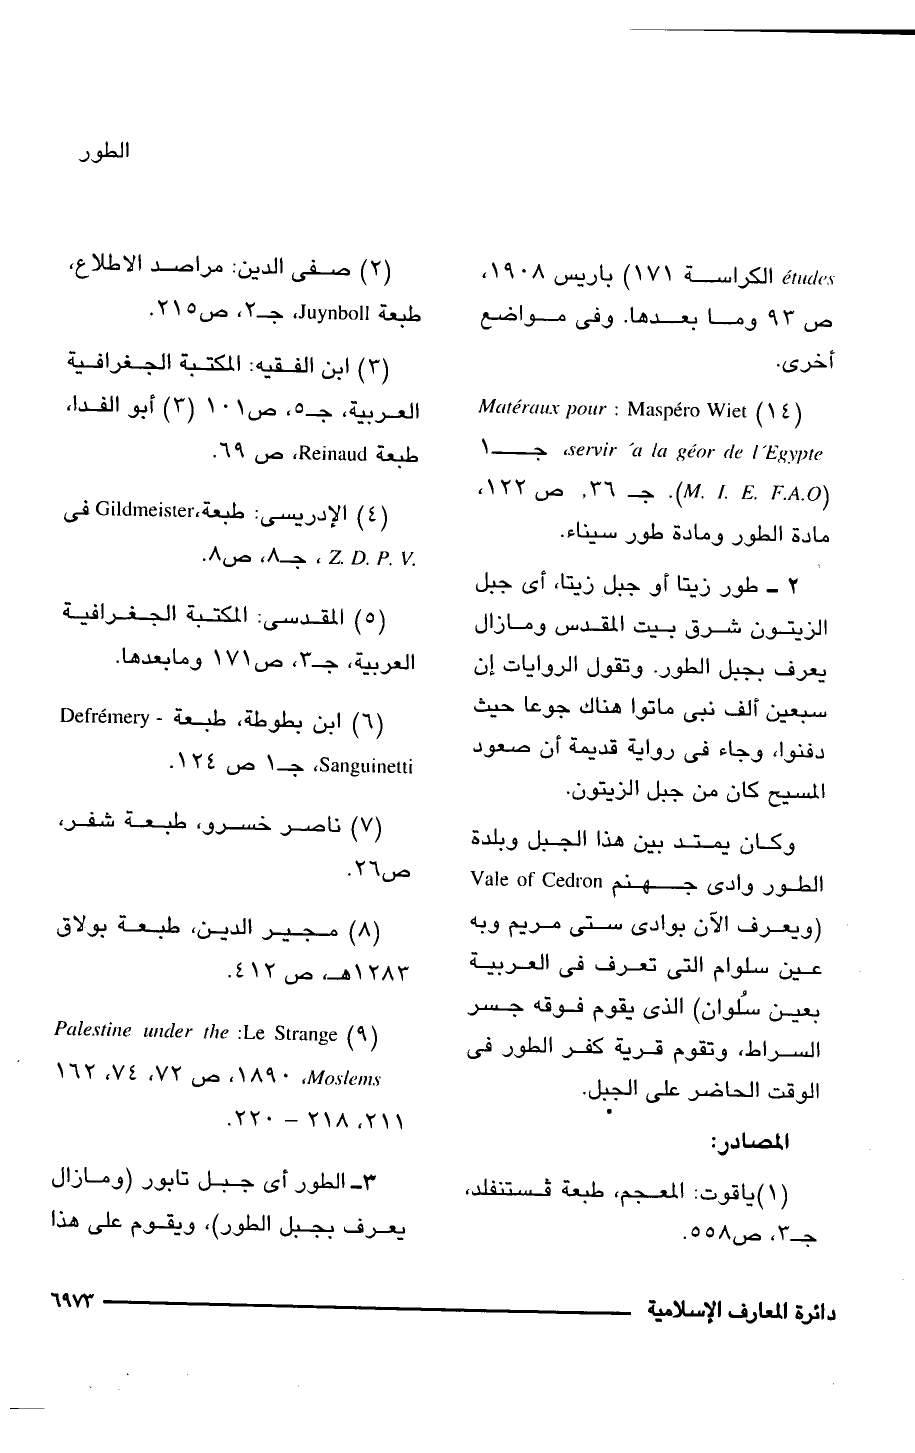 الطور
études الكراسة ١٧١) باريس ١٩٠٨،
ص ٩٣ وما بعدها. وفى مواضع
أخرى.
(١٤) Matéraux pour : Maspéro Wiet
servir ´a la géor de l´Egypte، جـ ١
(M. I. E. F.A.O). جـ ٣٦, ص ١٢٢،
مادة الطور ومادة طور سيناء.
٢ - طور زيتا أو جبل زيتا، أى جبل
الزيتون شرق بيت المقدس ومازال
يعرف بجبل الطور. وتقول الروايات إن
سبعين ألف نبى ماتوا هناك جوعا حيث
دفنوا، وجاء فى رواية قديمة أن صعود
المسيح كان من جبل الزيتون.
وكان يمتد بين هذا الجبل وبلدة
الطور وادى جهنم Vale of Cedron
(ويعرف الآن بوادى ستى مريم وبه
عين سلوام التى تعرف فى العربية
بعين سلُوان) الذى يقوم فوقه جسر
السراط، وتقوم قرية كفر الطور فى
الوقت الحاضر على الجبل.
المصادر:
(١)ياقوت: المعجم، طبعة ڤستنفلد،
جـ٣، ص٥٥٨.
(٢) صفى الدين: مراصد الاطلاع،
طبعة Juynboll، جـ٢، ص٢١٥.
(٣) ابن الفقيه: المكتبة الجغرافية
العربية، جـ٥، ص١٠١ (٣) أبو الفدا،
طبعة Reinaud، ص ٦٩.
(٤) الإدريسى: طبعة،Gildmeister فى
Z. D. P. V. ، جـ٨، ص٨.
(٥) المقدسى: المكتبة الجغرافية
العربية، جـ٣، ص١٧١ ومابعدها.
(٦) ابن بطوطة، طبعة Defrémery -
Sanguinetti، جـ١ ص ١٢٤.
(٧) ناصر خسرو، طبعة شفر،
ص٢٦.
(٨) مجير الدين، طبعة بولاق
١٢٨٣هـ، ص ٤١٢.
(٩) Palestine under the :Le Strange
Moslems، ١٨٩٠، ص ٧٢، ٧٤، ١٦٢
٢١١، ٢١٨ – ٢٢٠.
٣ـ الطور أى جبل تابور (ومازال
يعرف بجبل الطور)، ويقوم على هذا
دائرة المعارف الإسلامية ٦٩٧٣